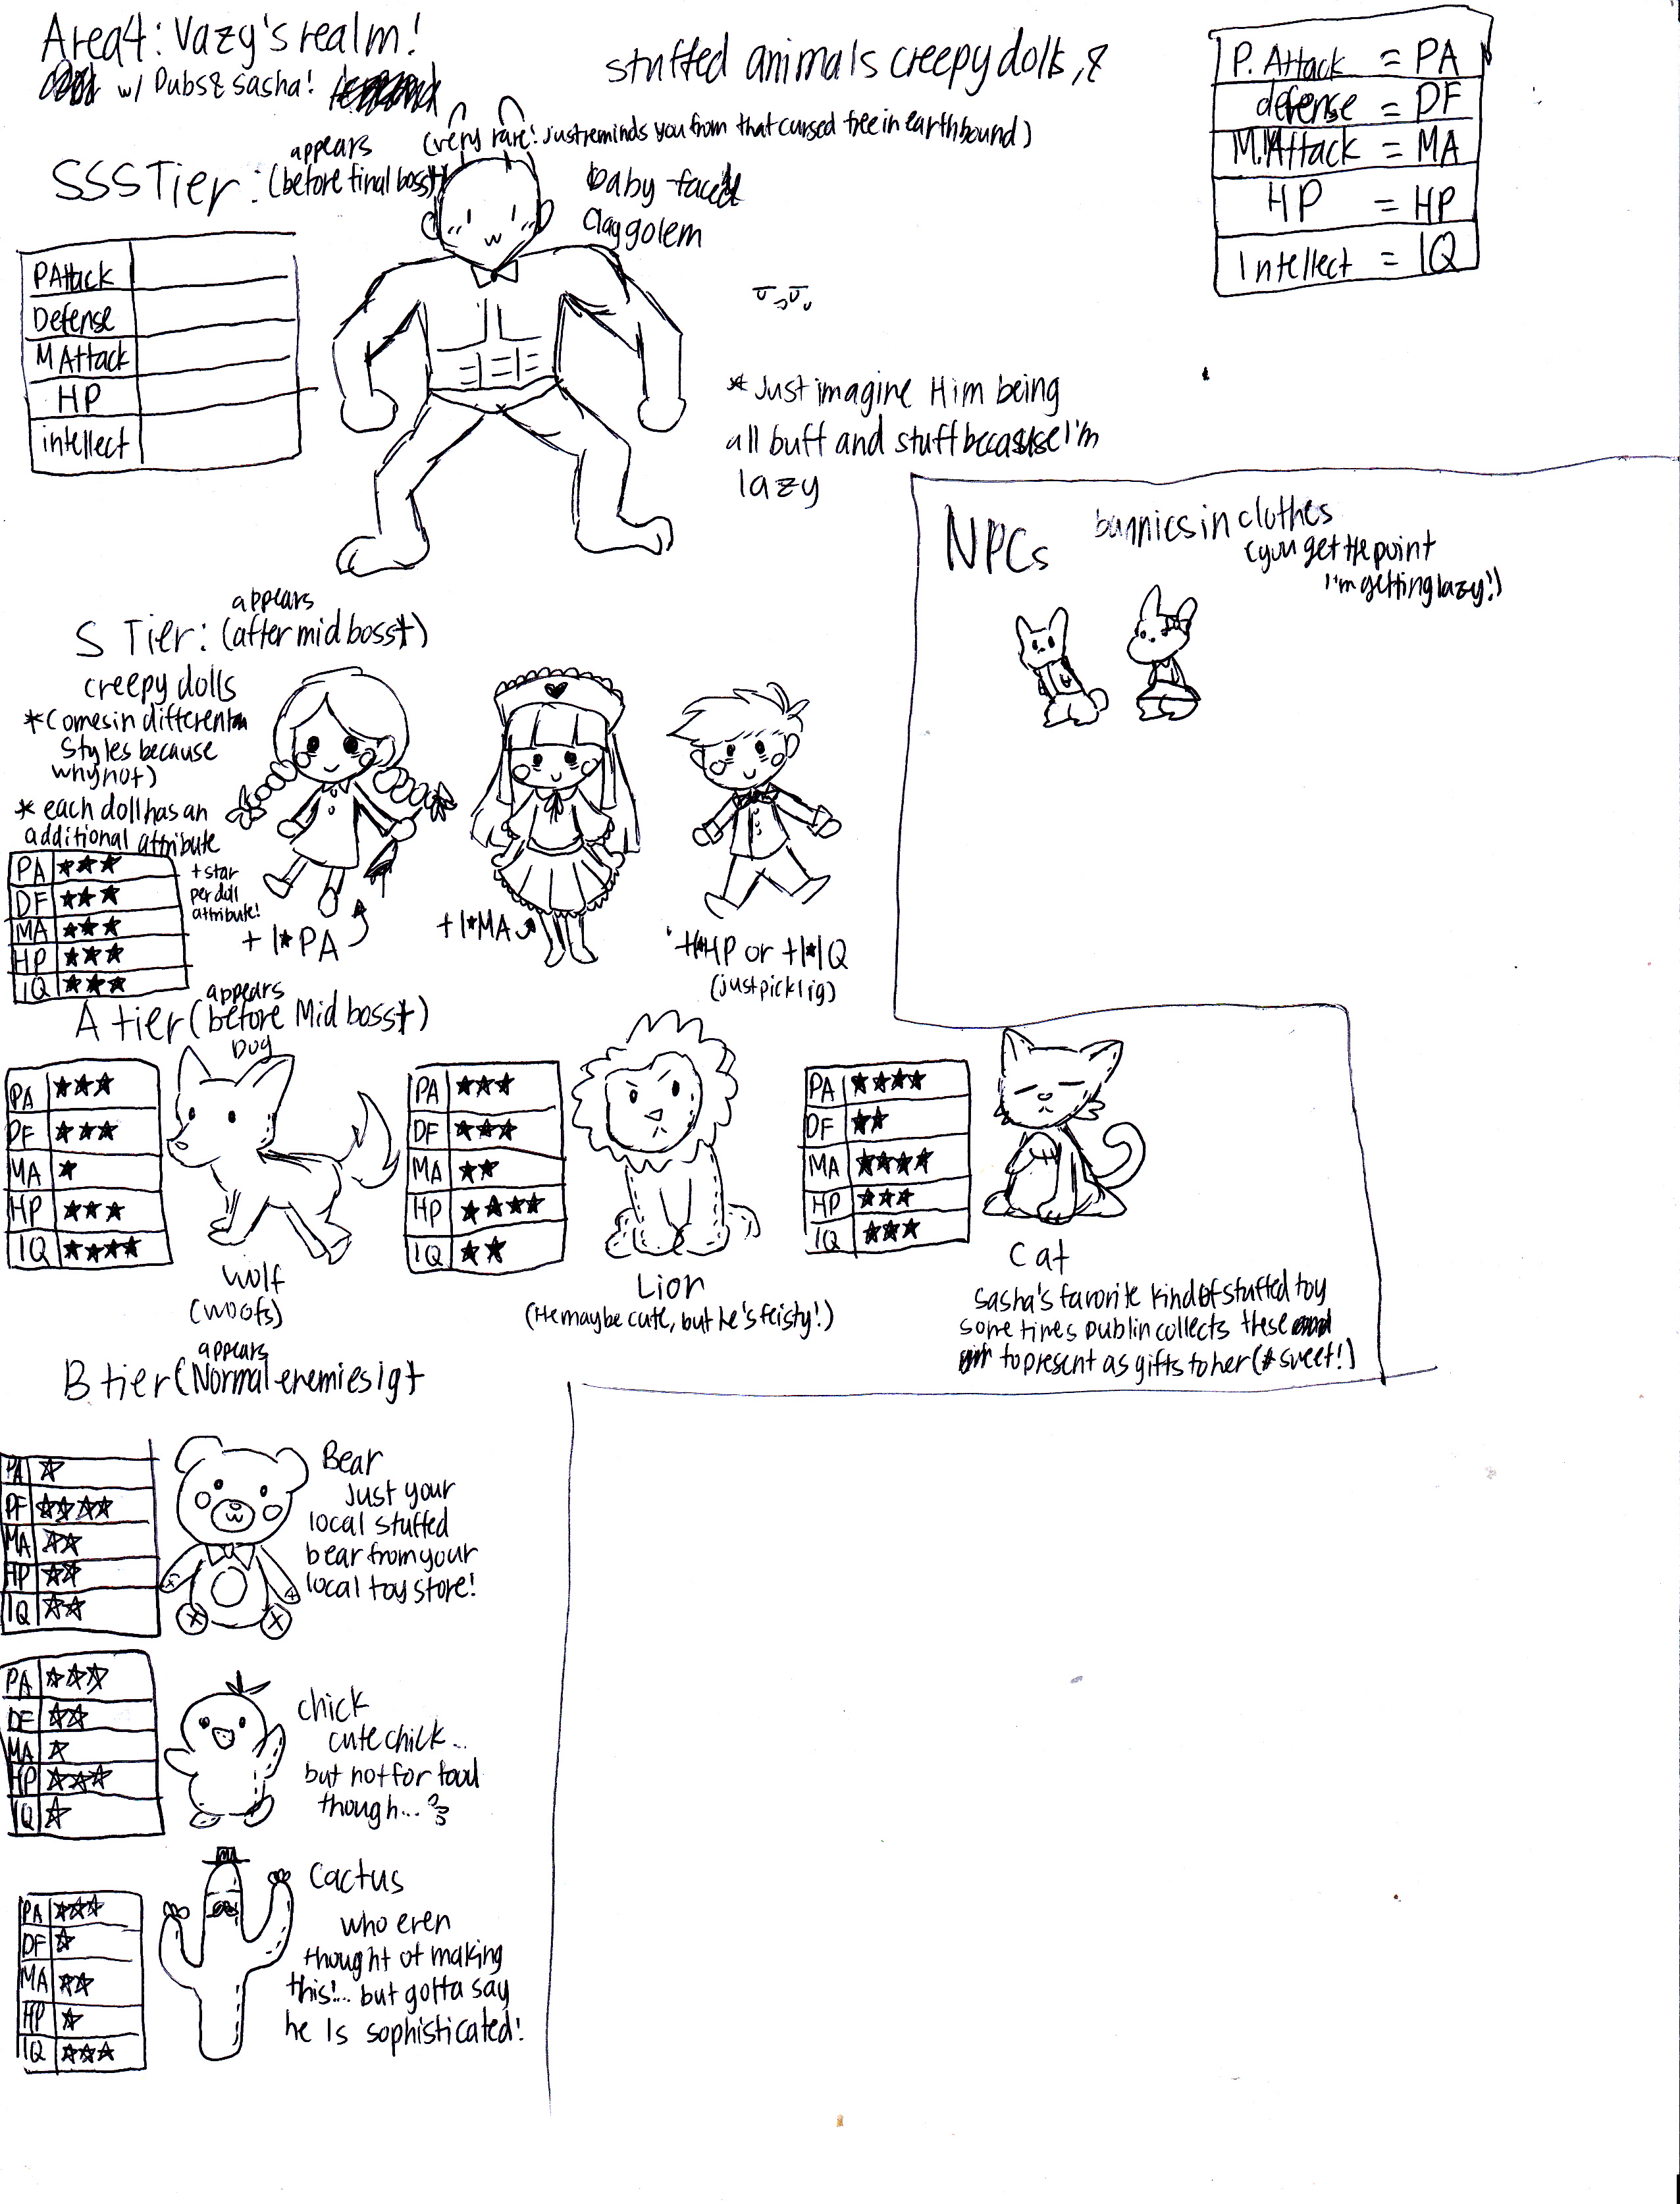 Area4: Vazy's realm!
w/ Dubs & sasha!
stuffed animals creepy dolls, &
P. Attack = PA
defense = DF
M. Attack = MA
HP = HP
Intellect = IQ
(very rare! Just reminds you from that cursed tree in earthbound)
appears
SSS Tier: (before final boss)
baby-faced
Clay golem
PAttack
Defense
M Attack
HP
intellect
* Just imagine Him being
all buff and stuff because I'm
lazy
NPCs
bunnies in clothes
(you get the point
I'm getting lazy!)
appears
S Tier: (after mid boss)
creepy dolls
* Comes in different
Styles because
why not)
* each doll has an
additional attribute
PA ★★★
DF ★★★
MA ★★★
HP ★★★
IQ ★★★
+ star
per doll
attribute!
+1★PA
+1★MA
+1★HP or +1★IQ
(just pick lig)
appears
A tier (before Mid boss)
Dog
PA ★★★
DF ★★★
MA ★
HP ★★★
IQ ★★★★
wolf
(woofs)
PA ★★★
DF ★★★
MA ★★
HP ★★★★
IQ ★★
Lion
(He maybe cute, but he's feisty!)
PA ★★★★
DF ★★
MA ★★★★
HP ★★★
IQ ★★★
Cat
Sasha's favorite kind of stuffed toy
some times Dublin collects these
to present as gifts to her (# sweet!)
appears
B tier (Normal enemies ig)
PA ★
DF ★★★★
MA ★★
HP ★★
IQ ★★
Bear
Just your
local stuffed
bear from your
local toy store!
PA ★★★
DF ★★
MA ★
HP ★★★
IQ ★
chick
cute chick...
but not for food
though...
PA ★★★
DF ★
MA ★★
HP ★
IQ ★★★
Cactus
who even
thought of making
this!... but gotta say
he Is sophisticated!